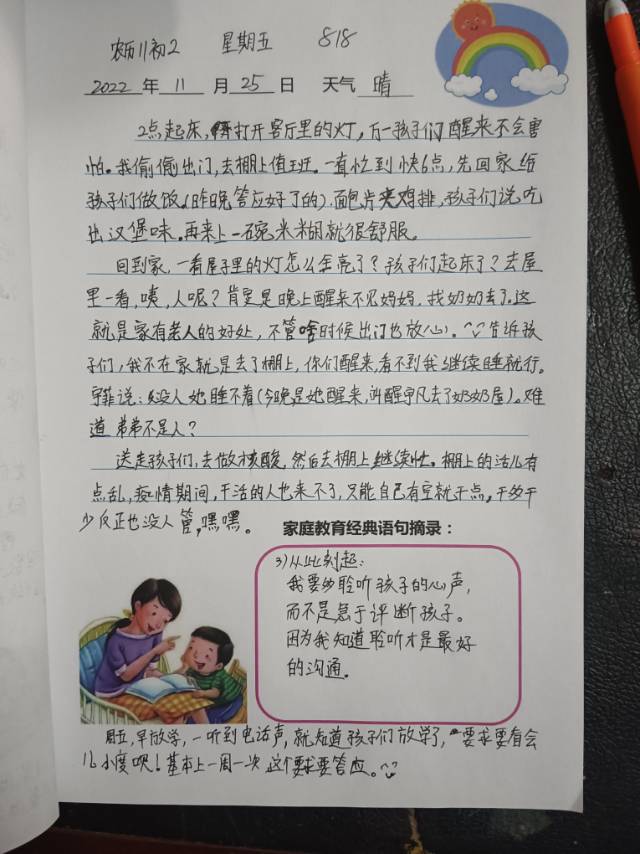 农历11初2 星期五 818
2022 年 11 月 25 日 天气 晴
2点起床,打开客厅里的灯,万一孩子们醒来不会害
怕。我偷偷出门,去棚上值班。一直忙到快6点,先回家给
孩子们做饭(昨晚答应好了的).面包片夹鸡排,孩子们说吃
出汉堡味。再来上一碗米糊就很舒服。
回到家,一看屋子里的灯怎么全亮了?孩子们起床了?去屋
里一看,咦,人呢?肯定是晚上醒来不见妈妈,找奶奶去了。这
就是家有老人的好处,不管啥时候出门也放心。告诉孩
子们,我不在家就是去了棚上,你们醒来,看不到我继续睡就行。
说:没人她睡不着(今晚是她醒来,叫醒宇凡去了奶奶屋)。难
道弟弟不是人?
送走孩子们,去做核酸,然后去棚上继续忙。棚上的活儿有
点乱,疫情期间,干活的人也来不了,只能自己有空就干点。干多干
少反正也没人管,嘿嘿。
家庭教育经典语句摘录:
3)从此刻起:
我要多聆听孩子的心声,
而不是急于评断孩子。
因为我知道聆听才是最好
的沟通。
周五,早放学,一听到电话声,就知道孩子们放学了,要求要看会
儿小度呗!基本上一周一次这个要求要答应。